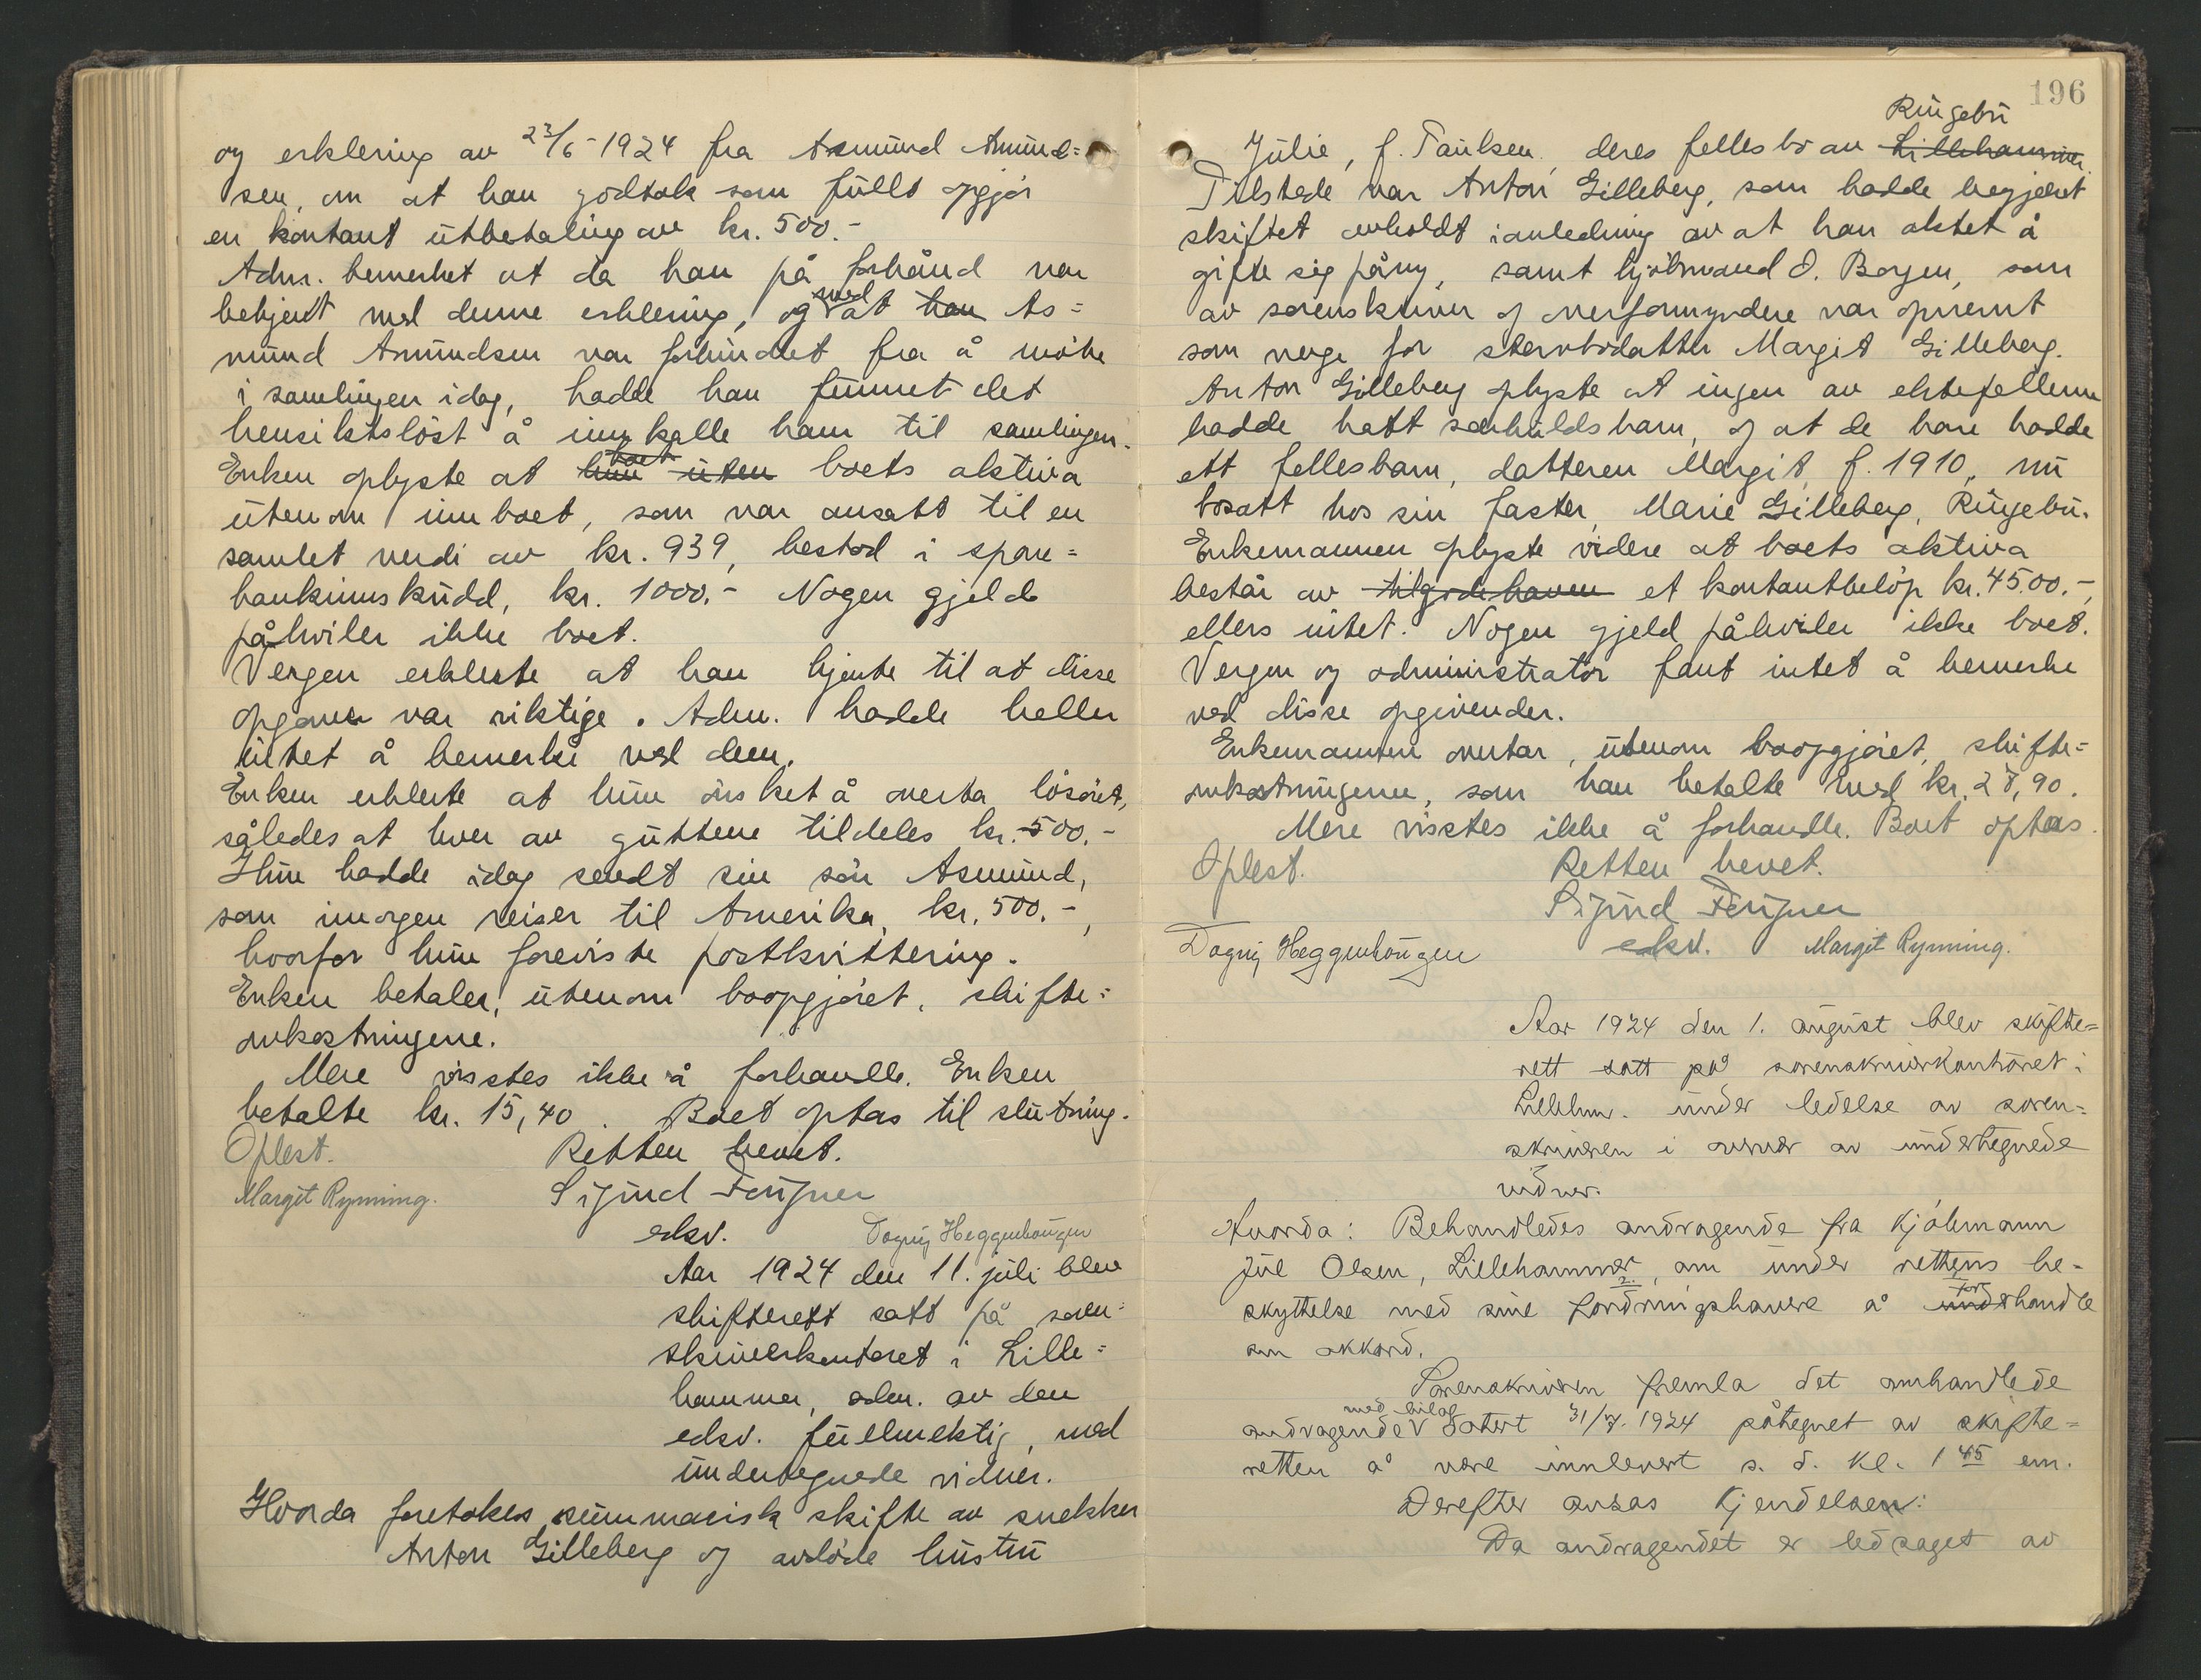 og erklering av 23/6-1924 fra Asmund Amund=
sen, om at han godtok som fullt opgjör
en kontant utbetaling av kr. 500.-
Adm. bemerket at da han på forhånd var
bekjent med denne erklering, og med at han As=
mund Amundsen var forhindret fra å möte
i samlingen idag, hadde han funnet det
hensiktslöst å innkalle ham til samlingen.
Enken oplyste at hun uten boet boets aktiva
utenom innboet, som var ansatt til en
samlet verdi av kr. 939, bestod i spare=
bankinnskudd, kr. 1000.- Nogen gjeld
påhviler ikke boet.
Vergen erklerte at han kjente til at disse
opgaver var riktige. Adm. hadde heller
intet å bemerke ved dem.
Enken erklerte at hun önsket å overta lösöret,
således at hver av guttene tildeles kr. 500.-
Hun hadde idag sendt sin sön Asmund,
som imorgen reiser til Amerika, kr. 500.-,
hvorfor hun foreviste postkvittering.
Enken betaler, utenom boopgjöret, skifte=
omkostningene.
Mere visstes ikke å forhandle. Enken
betalte kr. 15,40. Boet optas til slutning.
Oplest. Retten hevet.
Margit Rynning. Sigurd
edsv. Dagny Heggenhougen
Aar 1924 den 11. juli blev
skifterett satt på soren=
skriverkontoret i Lille=
hammer, adm. av den
edsv. fullmektig, med
undertegnede vidner.
Hvorda foretokes summarisk skifte av snekker
Anton Gilleberg og avdöde hustru
196
Ringebu
Julie, f. Paulsen, deres fellesbo av Lillehammer.
Tilstede var Anton Gilleberg, som hadde begjært
skiftet avholdt i anledning av at han aktet å
gifte sig påny, samt kjöbmand O. Borgen, som
av sorenskriver og overformyndere var opnevnt
som verge for stervbodatter Margit Gilleberg.
Anton Gilleberg oplyste at ingen av ektefellerne
hadde hatt særkuldsbarn, og at de bare hadde
ett fellesbarn, datteren Margit, f. 1910, nu
bosatt hos sin faster, Marie Gilleberg, Ringebu.
Enkemannen oplyste videre at boets aktiva
består av tilgodehaven et kontantbelöp kr. 4500.-,
ellers intet. Nogen gjeld påhviler ikke boet.
Vergen og administrator fant intet å bemerke
ved disse opgivender.
Enkemannen overtar, utenom boopgjöret, skifte=
omkostningene, som han betalte med kr. 28,90.
Mere visstes ikke å forhandle. Boet optas.
Oplest. Retten hevet.
Sigurd
Dagny Heggenhougen edsv. Margit Rynning.
Aar 1924 den 1. august blev skifte=
rett satt på sorenskriverkontoret i
Lillehmr. under ledelse av soren=
skriveren i nærvær av undertegnede
vidner.
Hvorda: Behandledes andragende fra kjöbmann
Jul Olsen, Lillehammer, om under rettens be-
skyttelse med sine fordringshavere å underhandle forhandle
om akkord.
Sorenskriveren fremla det omhandlede
andragende med bilag datert 31/7. 1924 påtegnet av skifte=
retten å være innlevert s. d. kl. 1 45 em.
Derefter avsas kjendelsen:
Da andragendet er ledsaget av